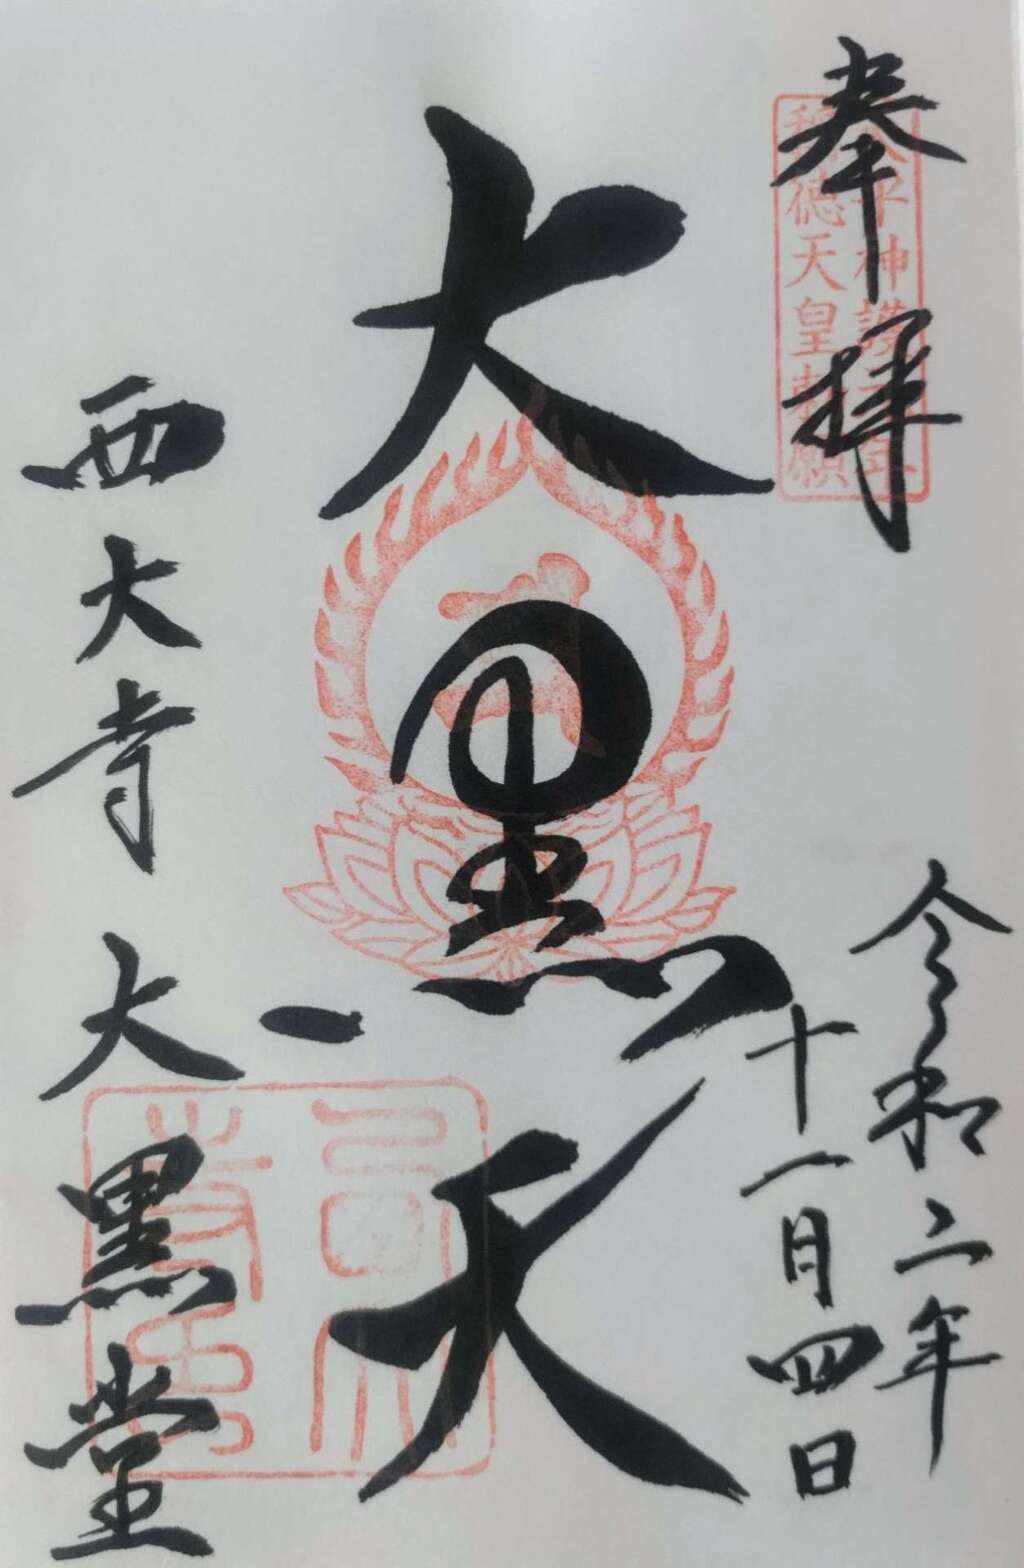 奉拝
天平神護元年
称徳天皇勅願
令和二年
十一月四日
大黒天
西大寺 大黒堂
西大寺印